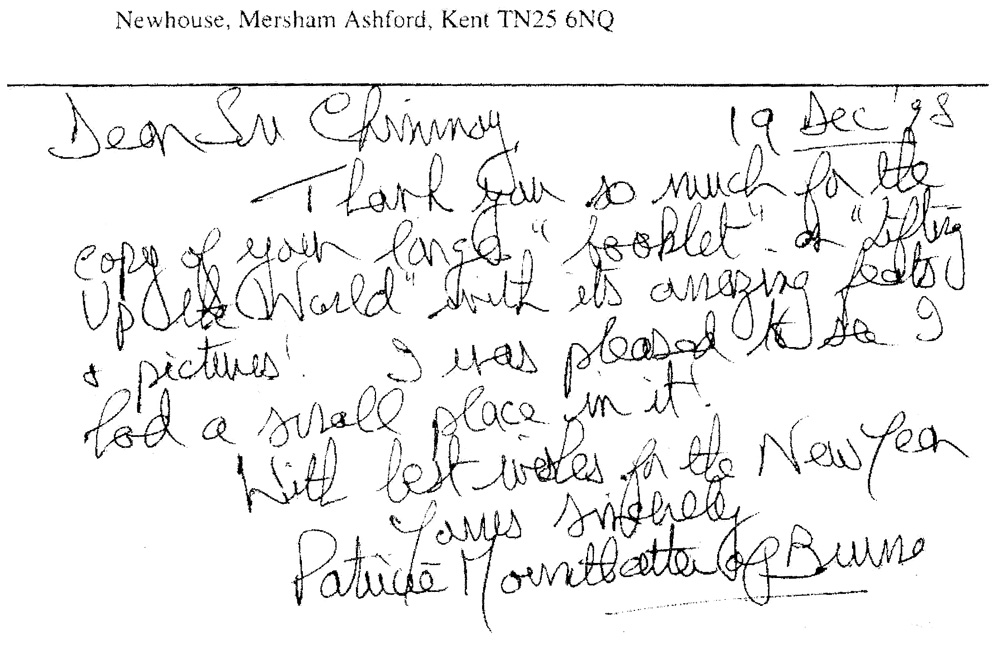 Newhouse, Mersham Ashford, Kent TN25 6NQ
Dear Sri Chinmoy, 19 Dec '98
Thank you so much for the
copy of your large "booklet" of "Lifting
Up the World" with its amazing feats
& pictures! I was pleased to see I
had a small place in it!
With best wishes for the New Year
Yours sincerely
Patricia Mountbatten of Burma